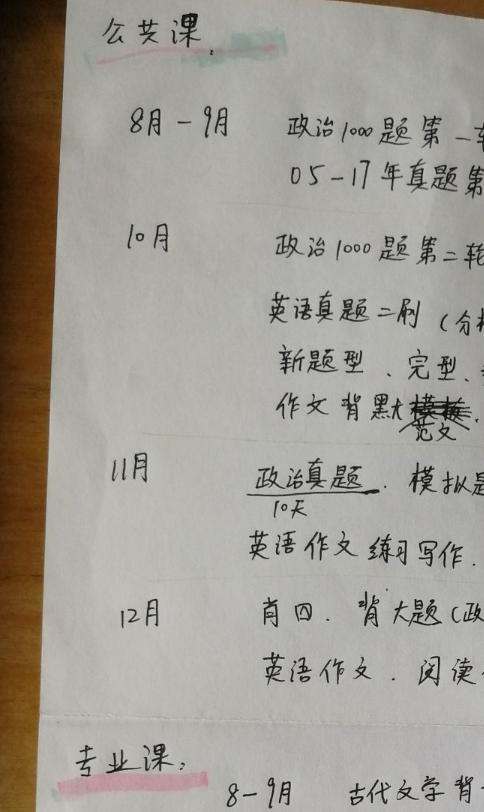 公共课.
8月-9月 政治1000题第一
05-17年真题第
10月 政治1000题第二轮
英语真题二刷(分
新题型、完型、
作文背默 范文
11月 政治真题. 模拟
10天
英语作文练习写作.
12月 肖四. 背大题(政
英语作文. 阅读
专业课:
8-9月 古代文学背